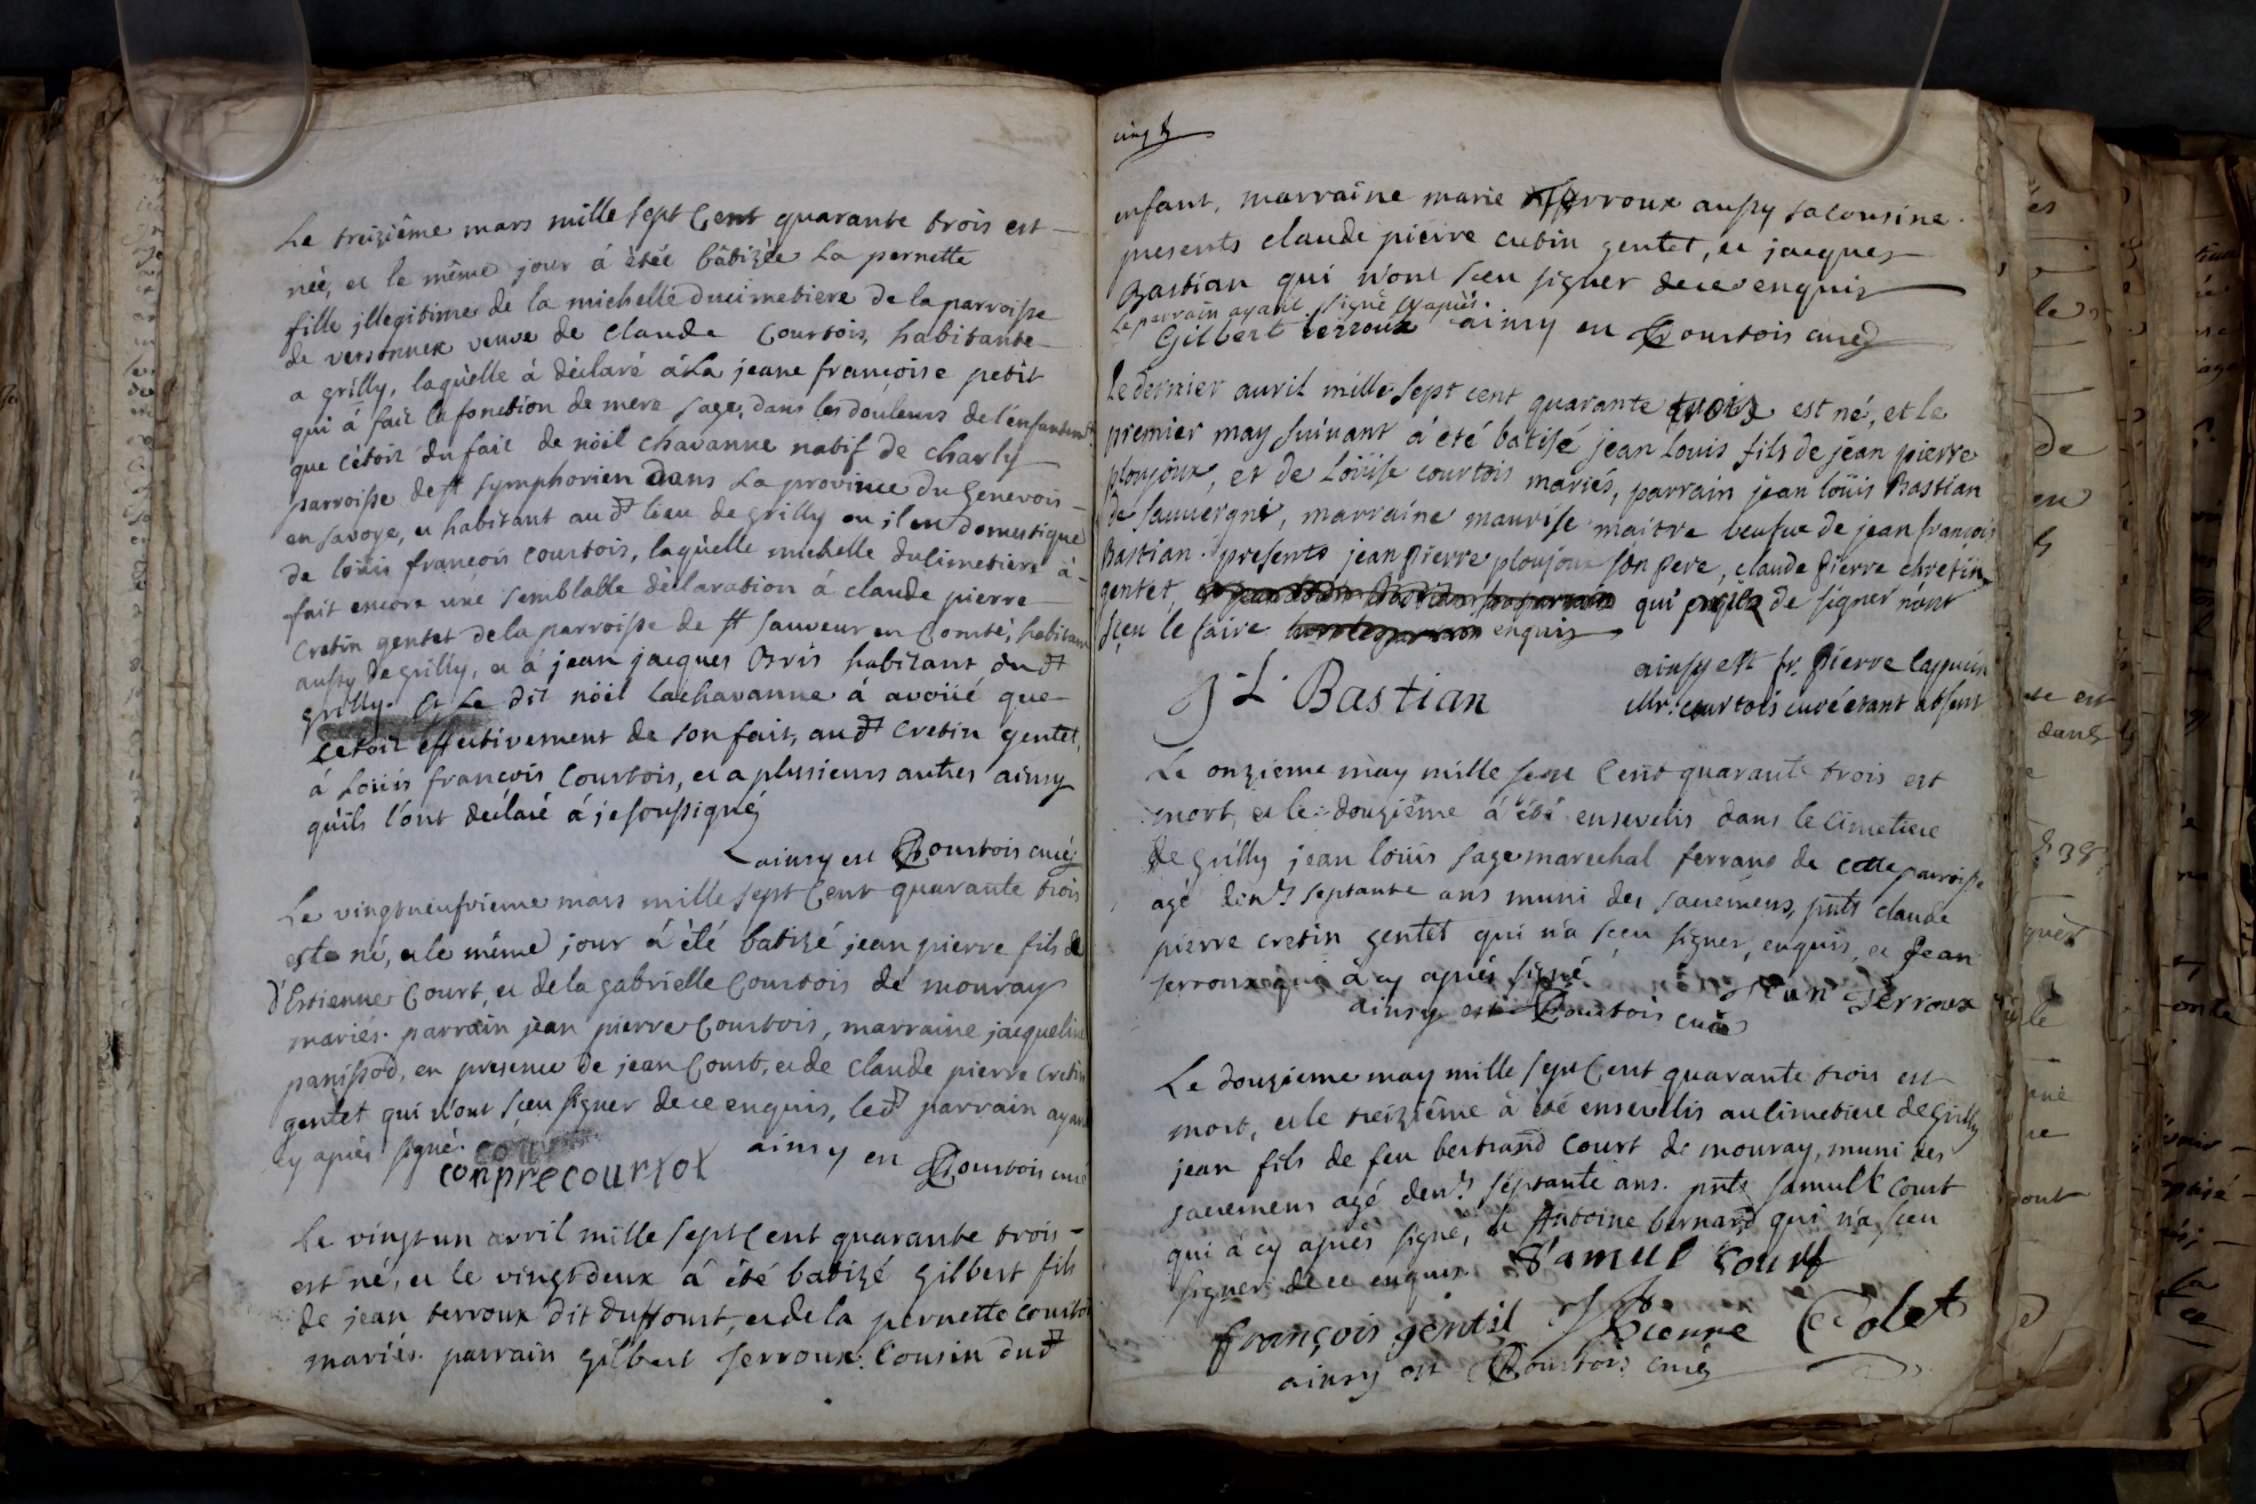 Le treiziême mars mille sept Cent quarante trois est
née, et le même jour á étéé bâtizée La pernette
fille jllegitime de la michelle Ducimetiere de la parroisse
de versonnex veuve de Claude Courtois, habitante
a grilly, laquelle á déclaré á La jeane françoise petit
qui á fait la fonction de mere sage, dans les douleurs de l'enfantemt.
que c'etoit du fait de nöil chavanne natif de charly
parroisse de st symphorien dans La province du Genevois
en savoye, et habitant au dt lieu de grilly ou il est domestique
de loüis françois courtois, laquelle michelle ducimetiere á
fait encore une semblable déclaration á claude pierre
Cretin gentet de la parroisse de st sauveur en Comté, habitant
aussy de grilly, et á jean jacques Bris habitant dudt
grilly. Et Le dit nöil lachavanne á avoüé que
cetoit effectivement de son fait, audt cretin gentet,
á Loüis françois Courtois, et a plusieurs autres ainsy
qu'ils l'ont déclaré á je soussigné
ainsy est Courtois curé
Le vingtneufvieme mars mille sept Cent quarante trois
est né, et le même jour á été batizé jean pierre fils de
d'Estienne Court, et de la gabrielle Courtois de mouray
mariés. parrain jean pierre Courtois, marraine jacqueline
panissod, en presence de jean Court, et de claude pierre Cretin
gentet qui n'ont sçeu signer de ce enquis, ledt parrain ayant
cy aprés signé.
conprecourtot ainsy est Courtois curé
Le vingtun avril mille sept Cent quarante trois
est né, et le vingtdeux á été batizé Gilbert fils
de jean terroux dit duffourt, et de la pernette courtois
mariés. parrain gilbert terroux Cousin dudt
cinq
enfant, marraine marie terroux aussy sa cousine.
presents claude pierre cretin gentet, et jacques
Bastian qui n'ont sceu signer de ce enquis
Le parrain ayant signé cy aprés.
Gilbert terroux ainsy est Courtois curé
le dernier avril mille sept cent quarante trois est né, et le
premier may suivant á été batisé jean Louis fils de jean pierre
ploujoux, et de Loüise courtois mariés, parrain jean loüis Bastian
de sauvergni, marraine maurise maitre veufve de jean françois
Bastian. presents jean pierre ploujoux son pere, claude pierre chretin
gentet, qui de signer n'ont
sçeu le faire enquis
J. L. Bastian
ainsy est fr. pierre Capucin
Mr. courtois curé étant absent
Le onzieme may mille sept Cent quarante trois est
mort, et le douziême á été ensevelis dans le Cimetiere
de grilly jean loüis sage marechal ferrant de cette parroisse
agé denv. septante ans muni des sacremens, pnts claude
pierre cretin gentet qui n'a sçeu signer, enquis, et Jean
terroux qui á cy aprés signé
ainsy est Courtois curé Jean Terroux
Le douzieme may mille sept Cent quarante trois est
mort, et le treiziême á été ensevelis au Cimetiere de grilly
jean fils de feu bertrand Court de mouray, muni des
sacremens agé denv. septante ans. pnts samuel Court
qui á cy aprés signé, et Antoine bernard qui n'a sceu
signer de ce enquis. Samuel Court
françois gentil
ainsy est Courtois curé